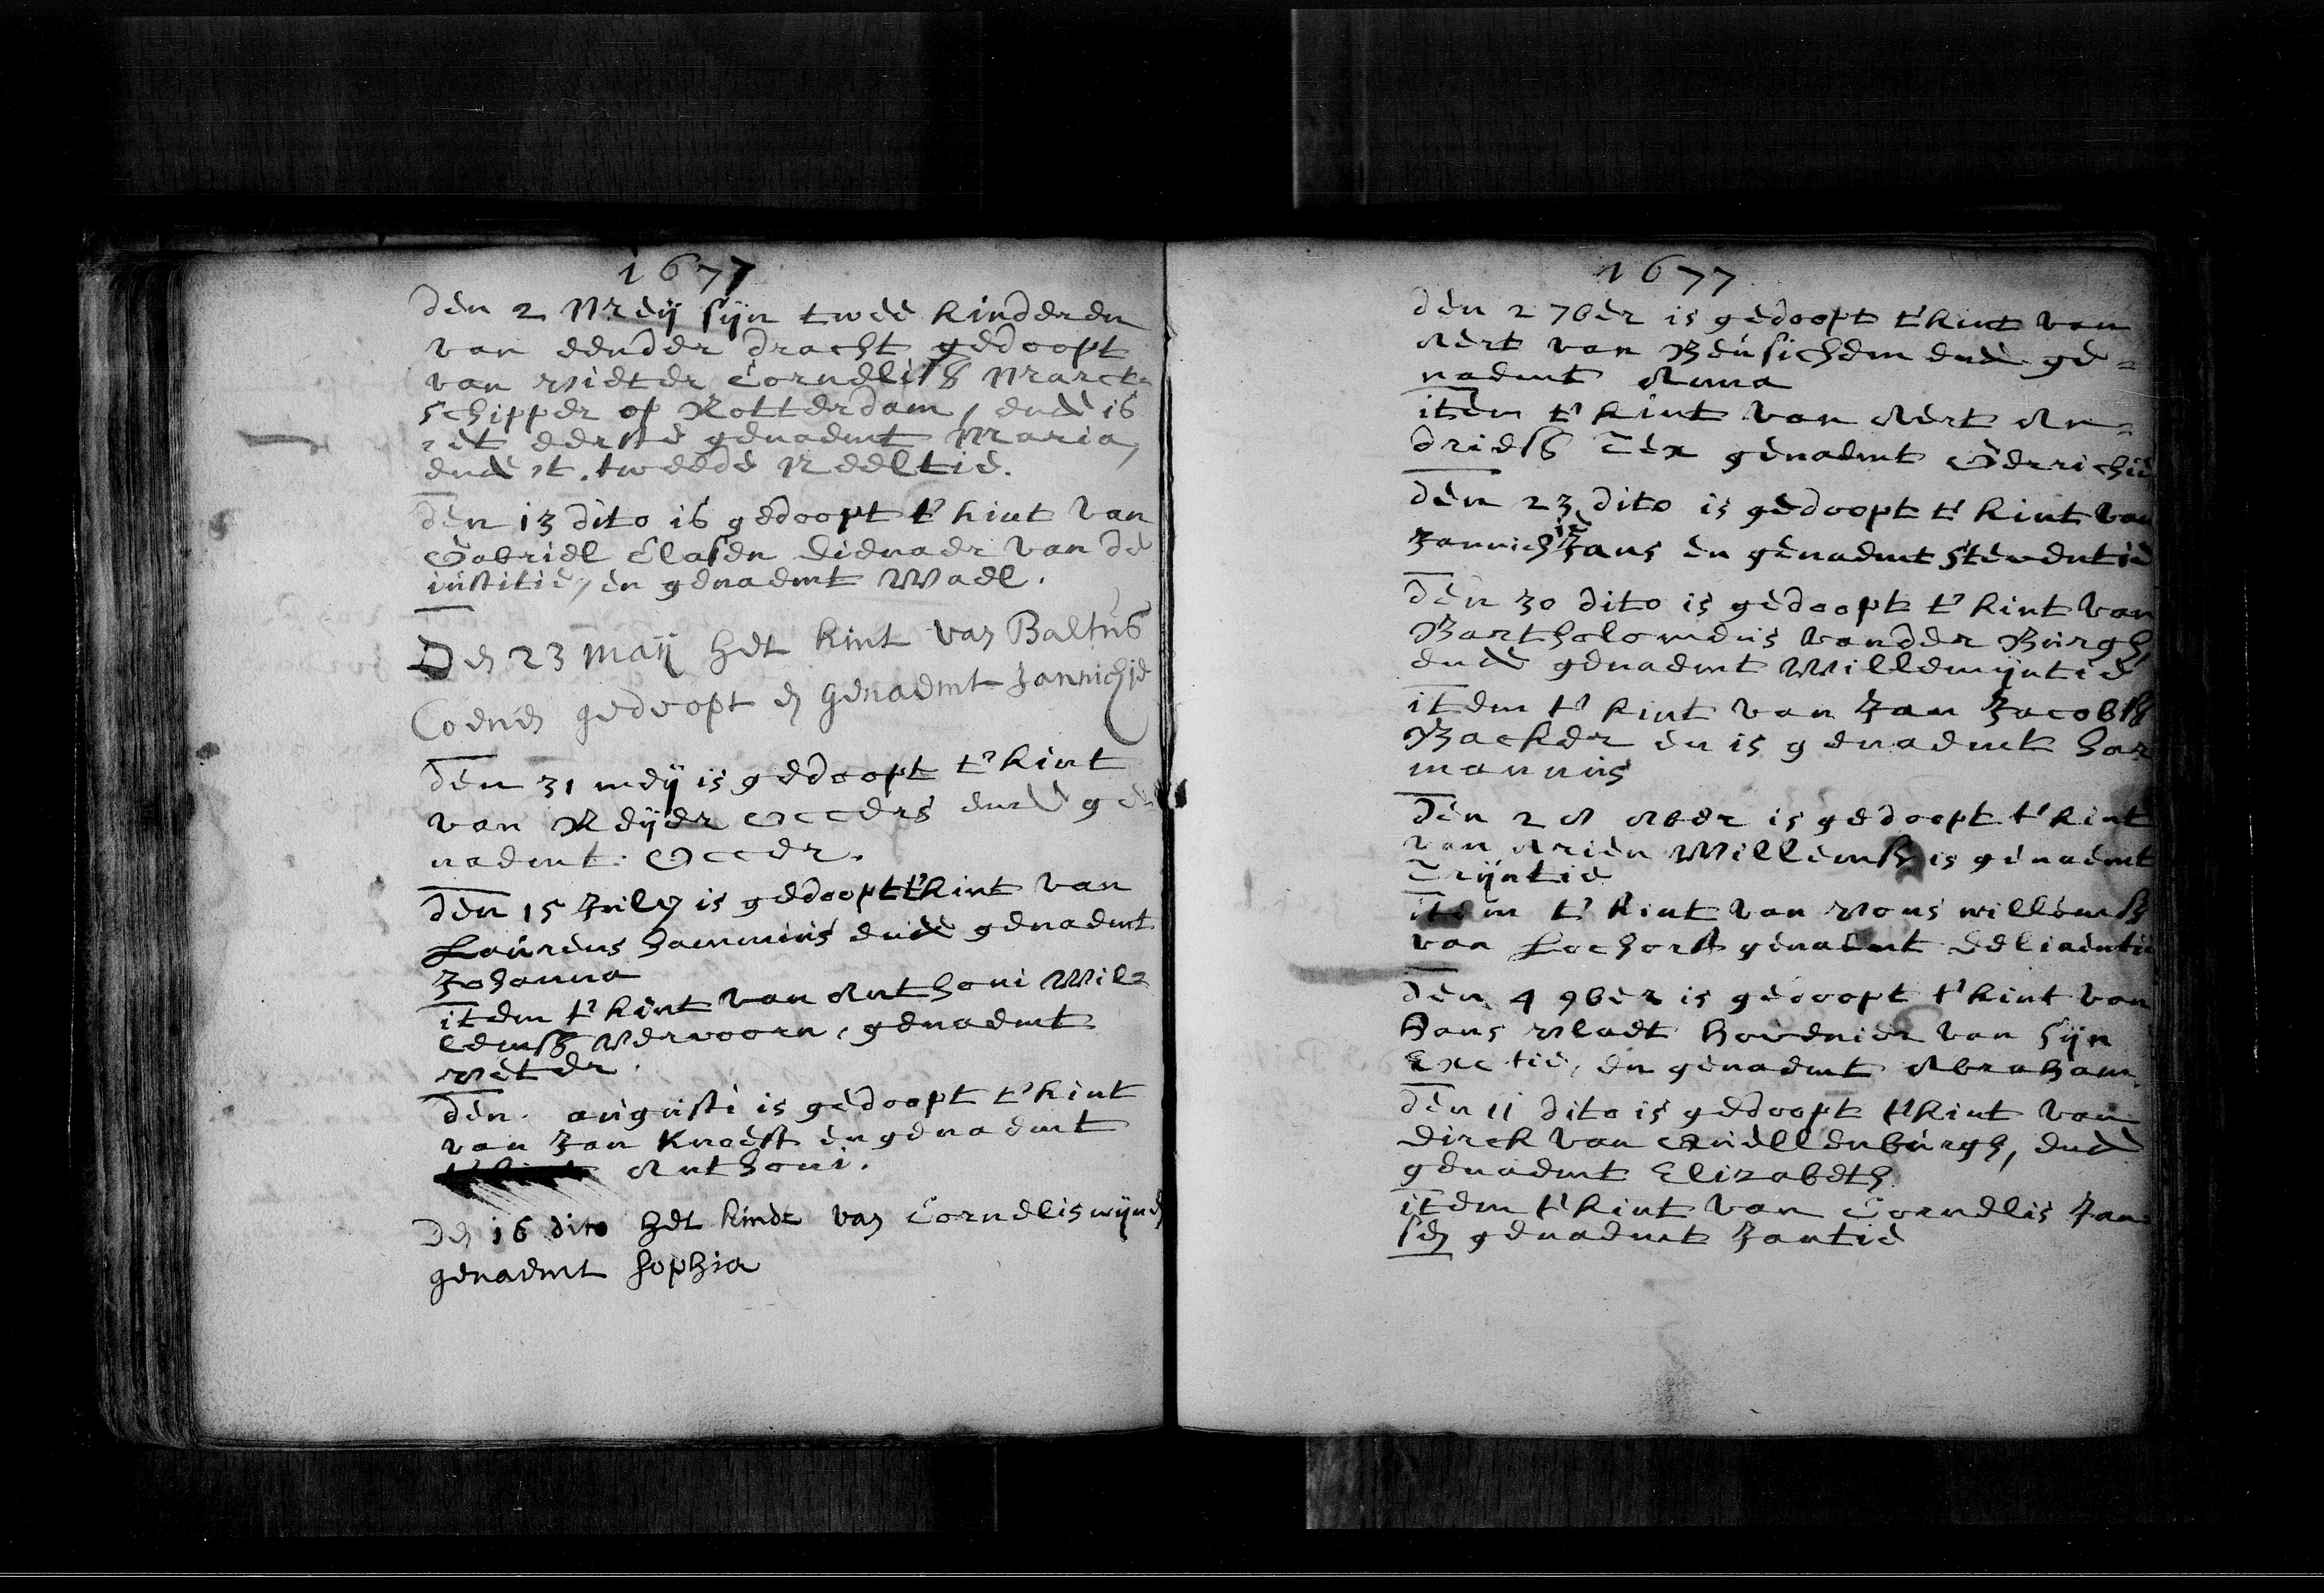 1677
den 2 Meij sijn twee kinderen
van eender dracht gedoopt
van Pieter Cornelisz Marckt
schipper op Rotterdam, ende is
het eerste genaemt Maria,
ende 't tweede Neeltie.
den 13 dito is gedoopt t' kint van
Gabriel Clasen dienaer van de
iustitie, en genaemt
Den 23 Maij het kint van Baltus
Coenen gedoopt en genaemt Jannichje
den 31 meij is gedoopt t' kint
van Reijer Occers ende ge
naemt Occer.
den 15 July is gedoopt t' kint van
Laurens Hammius ende genaemt
Johanna
item t' kint van Anthoni Wil=
lemsz Vervoorn, genaemt
Peter.
den augusti is gedoopt t' kint
van Jan Knoest en genaemt
Anthoni.
Den 16 dito het kindt van Cornelis wijnen
genaemt Sophia
1677
den 2 7ber is gedoopt t' kint van
Aert van Beusichem ende ge=
naemt Anna
item t' kint van Aert An=
driesz Tex genaemt Gerrichie
den 23 dito is gedoopt t' kint van
Jannich Jans en genaemt Steventie
den 30 dito is gedoopt t' kint van
Bartholomeus vander Burgh
ende genaemt Willemijntie
item t' kint van Jan Jacobsz
Backer en is genaemt Har
mannus
den 8ber is gedoopt t' kint
van Arien Willemsz is genaemt
Trijntie
item t' kint van Pons willemsz
van Lochorst genaemt
den 4 9ber is gedoopt t' kint van
Hans Plaet hovenier van Sijn
Exctie, en genaemt Abraham.
den 11 dito is gedoopt t' kint van
Dirck van Cuillenburgh, ende
genaemt Elizabeth
item t' kint van Cornelis Jan
sen genaemt Jantie